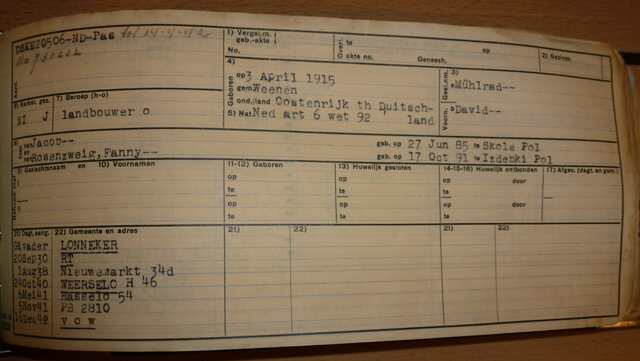 DSKE20506-ND-Pas tot 14-4-42
1) Vergel.nr. geb.-akte: No.
Overl. op te o akte no. Geneesh.
2) Gezinv.
4) Geboren op 3 April 1915
gem Weenen
ond./land Oostenrijk th Duitsch-
land
5) Nat Ned art 6 wet 92
3) Gesl.nm. Mühlrad--
Voorn. David--
6) Kerkel. gez. NI J
7) Beroep (h-o) landbouwer o
van Jacob-- geb. op 27 Jun 85 te Skole Pol
en van Rosenzweig, Fanny-- geb. op 17 Oct 91 te Izdebki Pol
9) Geslachtsnaam en 10) Voornamen
11-12) Geboren
13) Huwelijk gesloten
14-15-16) Huwelijk ontbonden
17) Afgev. (dagt. en gem.)
op op op door
te te te
op op op door
te te te
21) Dagt. aang. 22) Gemeente en adres 21) 22) 21) 22)
vader LONNEKER
20Sep30 RT
1Aug38 Nieuwemarkt 34d
24Oct40 WEERSELO H 46
6Mei41 Hasselo 54
5Nov41 PB 2810
Dec42 v o w